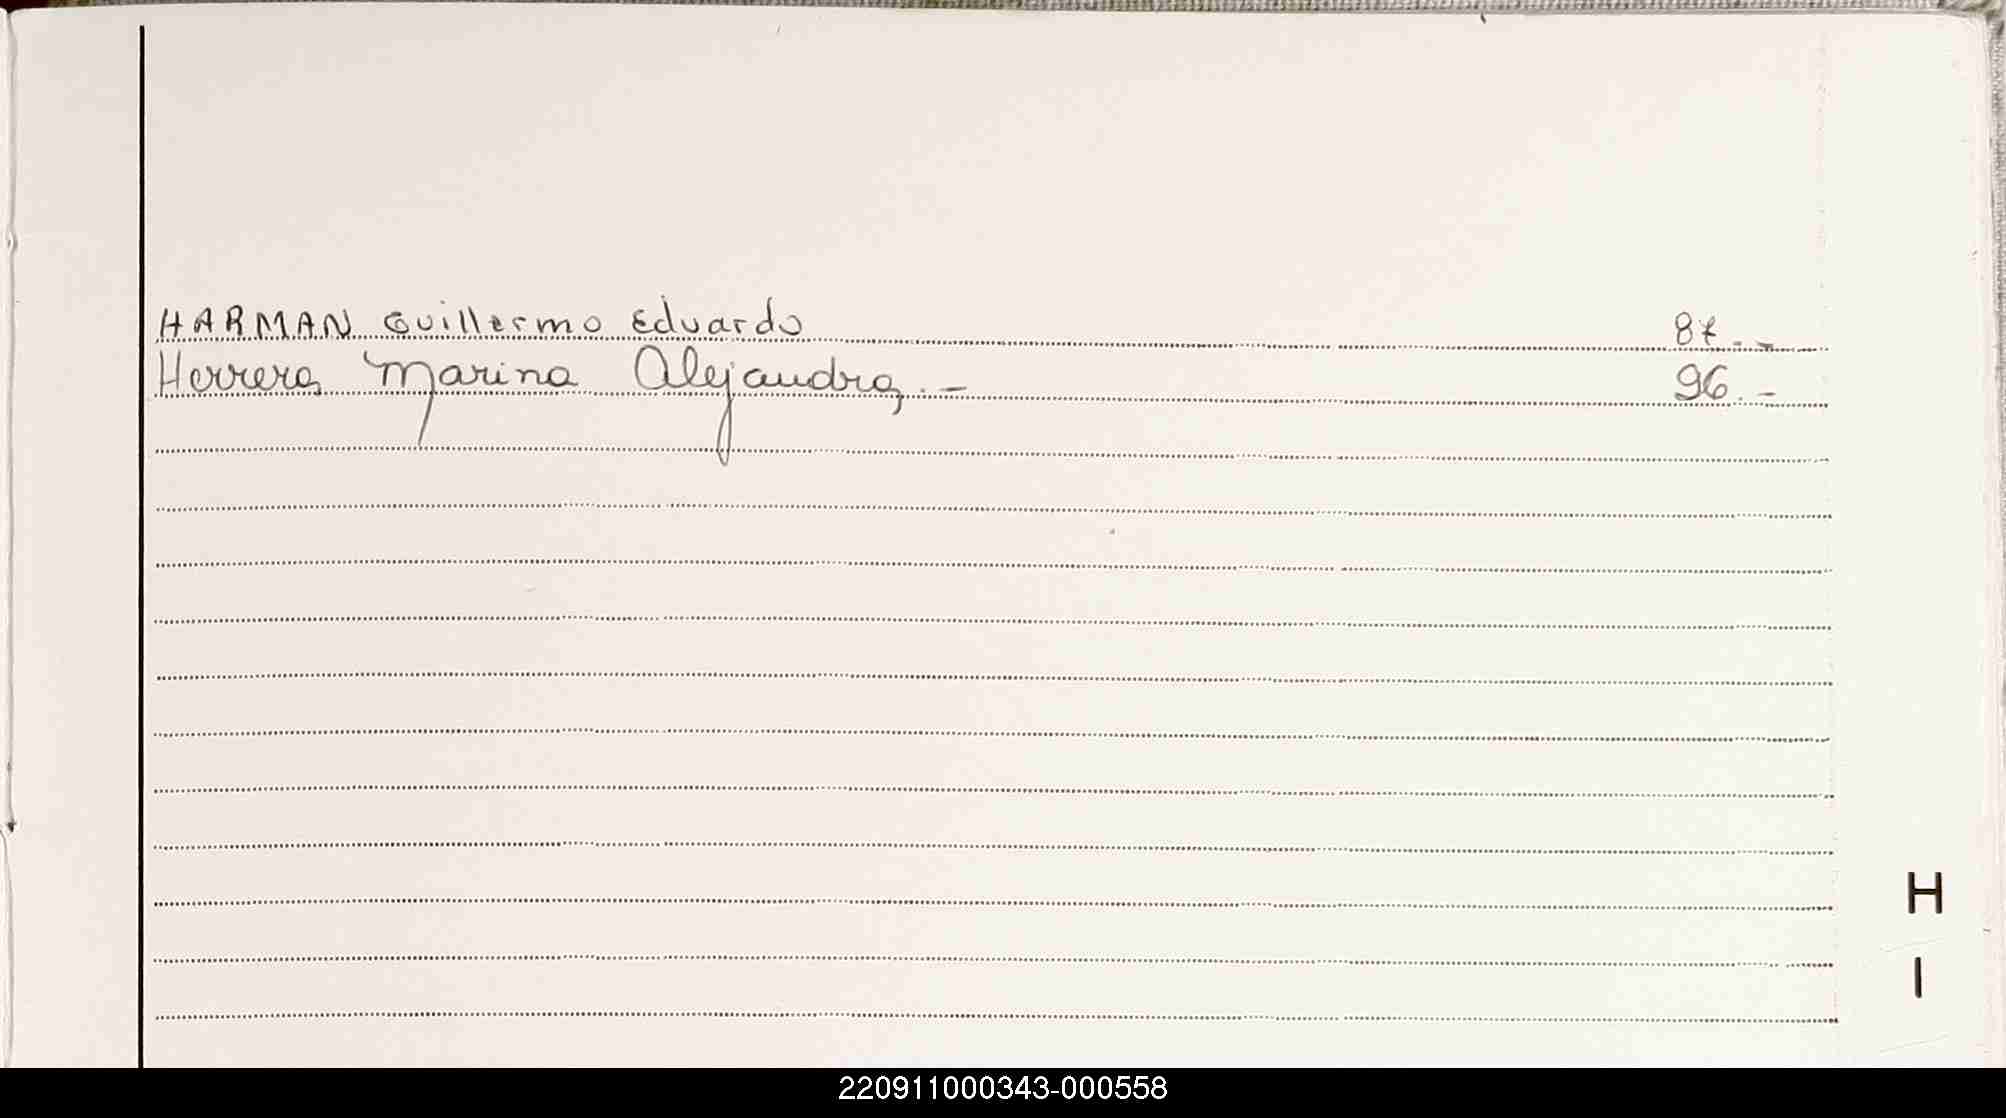 HARMAN Guillermo Eduardo 87.-
Herrera Marina Alejandra.- 96.-
H
I
220911000343-000558